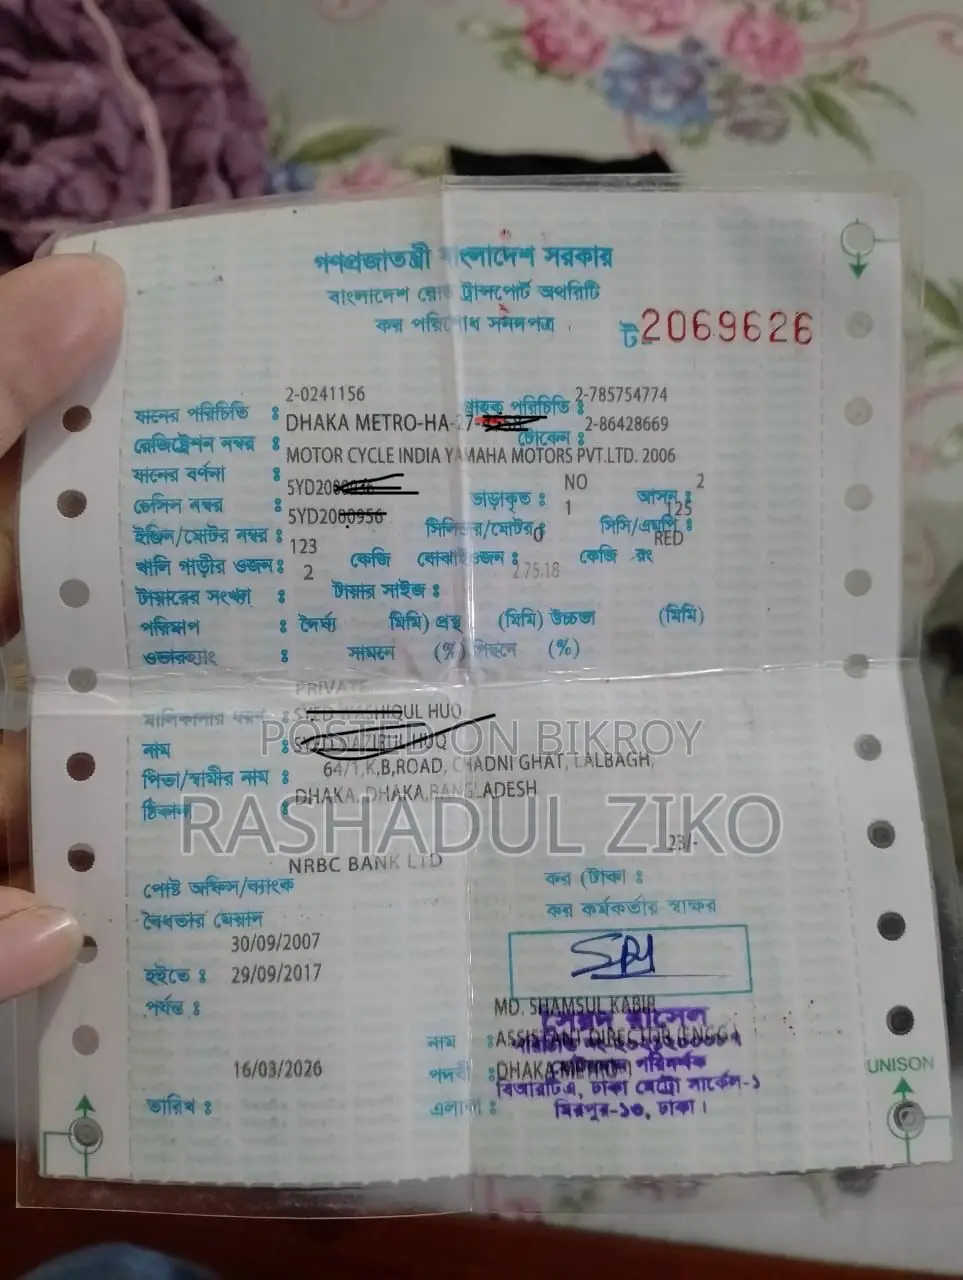 গণপ্রজাতন্ত্রী বাংলাদেশ সরকার
বাংলাদেশ রোড ট্রান্সপোর্ট অথরিটি
কর পরিশোধ সনদপত্র
ট-2069626
2-0241156 2-785754774
যানের পরিচিতি : গ্রাহক পরিচিতি :
DHAKA METRO-HA-27- 2-86428669
রেজিষ্ট্রেশন নম্বর : টোকেন :
MOTOR CYCLE INDIA YAMAHA MOTORS PVT.LTD. 2006
যানের বর্ণনা :
5YD20 NO 2
চেসিস নম্বর : ভাড়াকৃত : আসন :
5YD20 1 125
ইঞ্জিন/মোটর নম্বর : সিলিন্ডার/মোটর : সিসি/এমপি :
123 0 RED
খালি গাড়ীর ওজন : কেজি বোঝাই ওজন : কেজি রং :
2 2.75.18
টায়ারের সংখ্যা : টায়ার সাইজ :
পরিমাপ : দৈর্ঘ্য (মিমি) প্রস্থ (মিমি) উচ্চতা (মিমি)
ওভারহ্যাং : সামনে (%) পিছনে (%)
PRIVATE
মালিকানার ধরণ :
HUQ
নাম :
HUQ
64/1,K,B,ROAD, CHADNI GHAT, LALBAGH,
পিতা/স্বামীর নাম :
DHAKA, DHAKA,BANGLADESH
ঠিকানা :
POSTED ON BIKROY
RASHADUL ZIKO
23/-
NRBC BANK LTD
পোষ্ট অফিস/ব্যাংক
কর (টাকা :
বৈধতার মেয়াদ
কর কর্মকর্তার স্বাক্ষর
30/09/2007
হইতে : 29/09/2017
পর্যন্ত :
MD. SHAMSUL KABIR
নাম : ASSISTANT DIRECTOR (ENGG.)
16/03/2026
পদবী : DHAKA METRO-1
পরিদর্শক
বিআরটিএ, ঢাকা মেট্রো সার্কেল-১
তারিখ : এলাকা :
মিরপুর-১৩, ঢাকা।
UNISON